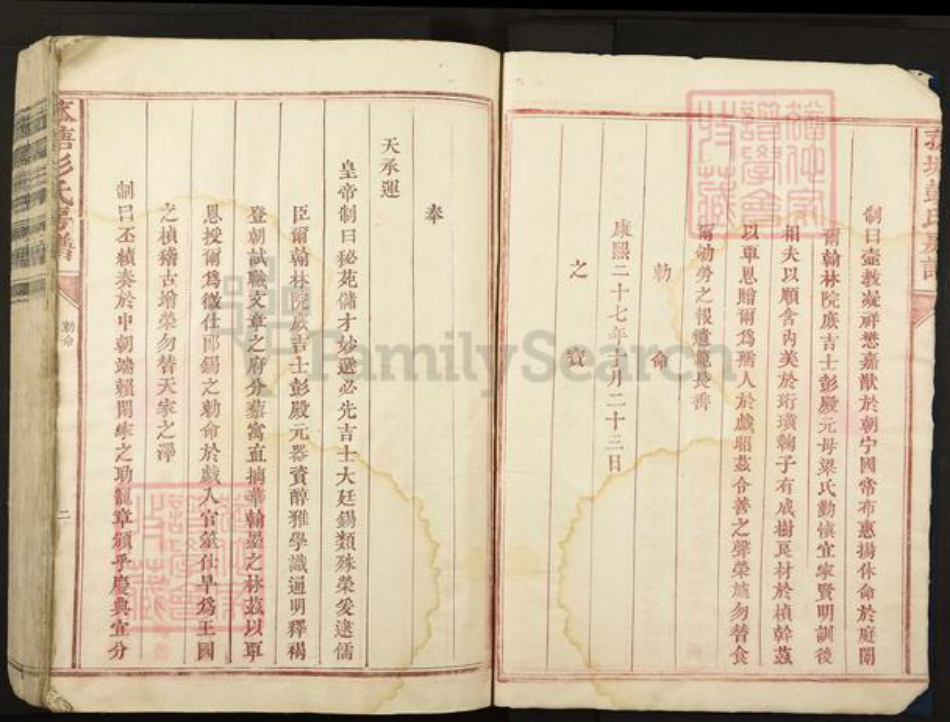 制曰壼教凝祥懋嘉猷於朝宁國常布惠揚休命於庭闈
爾翰林院庶吉士彭殿元母梁氏勤慎宜家賢明訓後
相夫以順含內美於珩璜鞠子有成樹良材於楨幹茲
以覃恩贈爾為孺人於戲昭茲令善之聲榮施勿替食
爾劬勞之報遺範長垂
勅命
康熙二十七年十月二十三日
之寶
奉
天承運
皇帝制曰秘苑儲才妙選必先吉士大廷錫類殊榮爰逮儒
臣爾翰林院庶吉士彭殿元器資醇雅學識通明釋褐
登朝試職文章之府分藜寓直摛華翰墨之林茲以覃
恩授爾為徵仕郎錫之勅命於戲入官筮仕早為王國
之楨稽古增榮勿替天家之澤
制曰丕績奏於中朝端賴閨幃之助寵章頒乎慶典宜分
彭氏房譜
勅命
二
FamilySearch